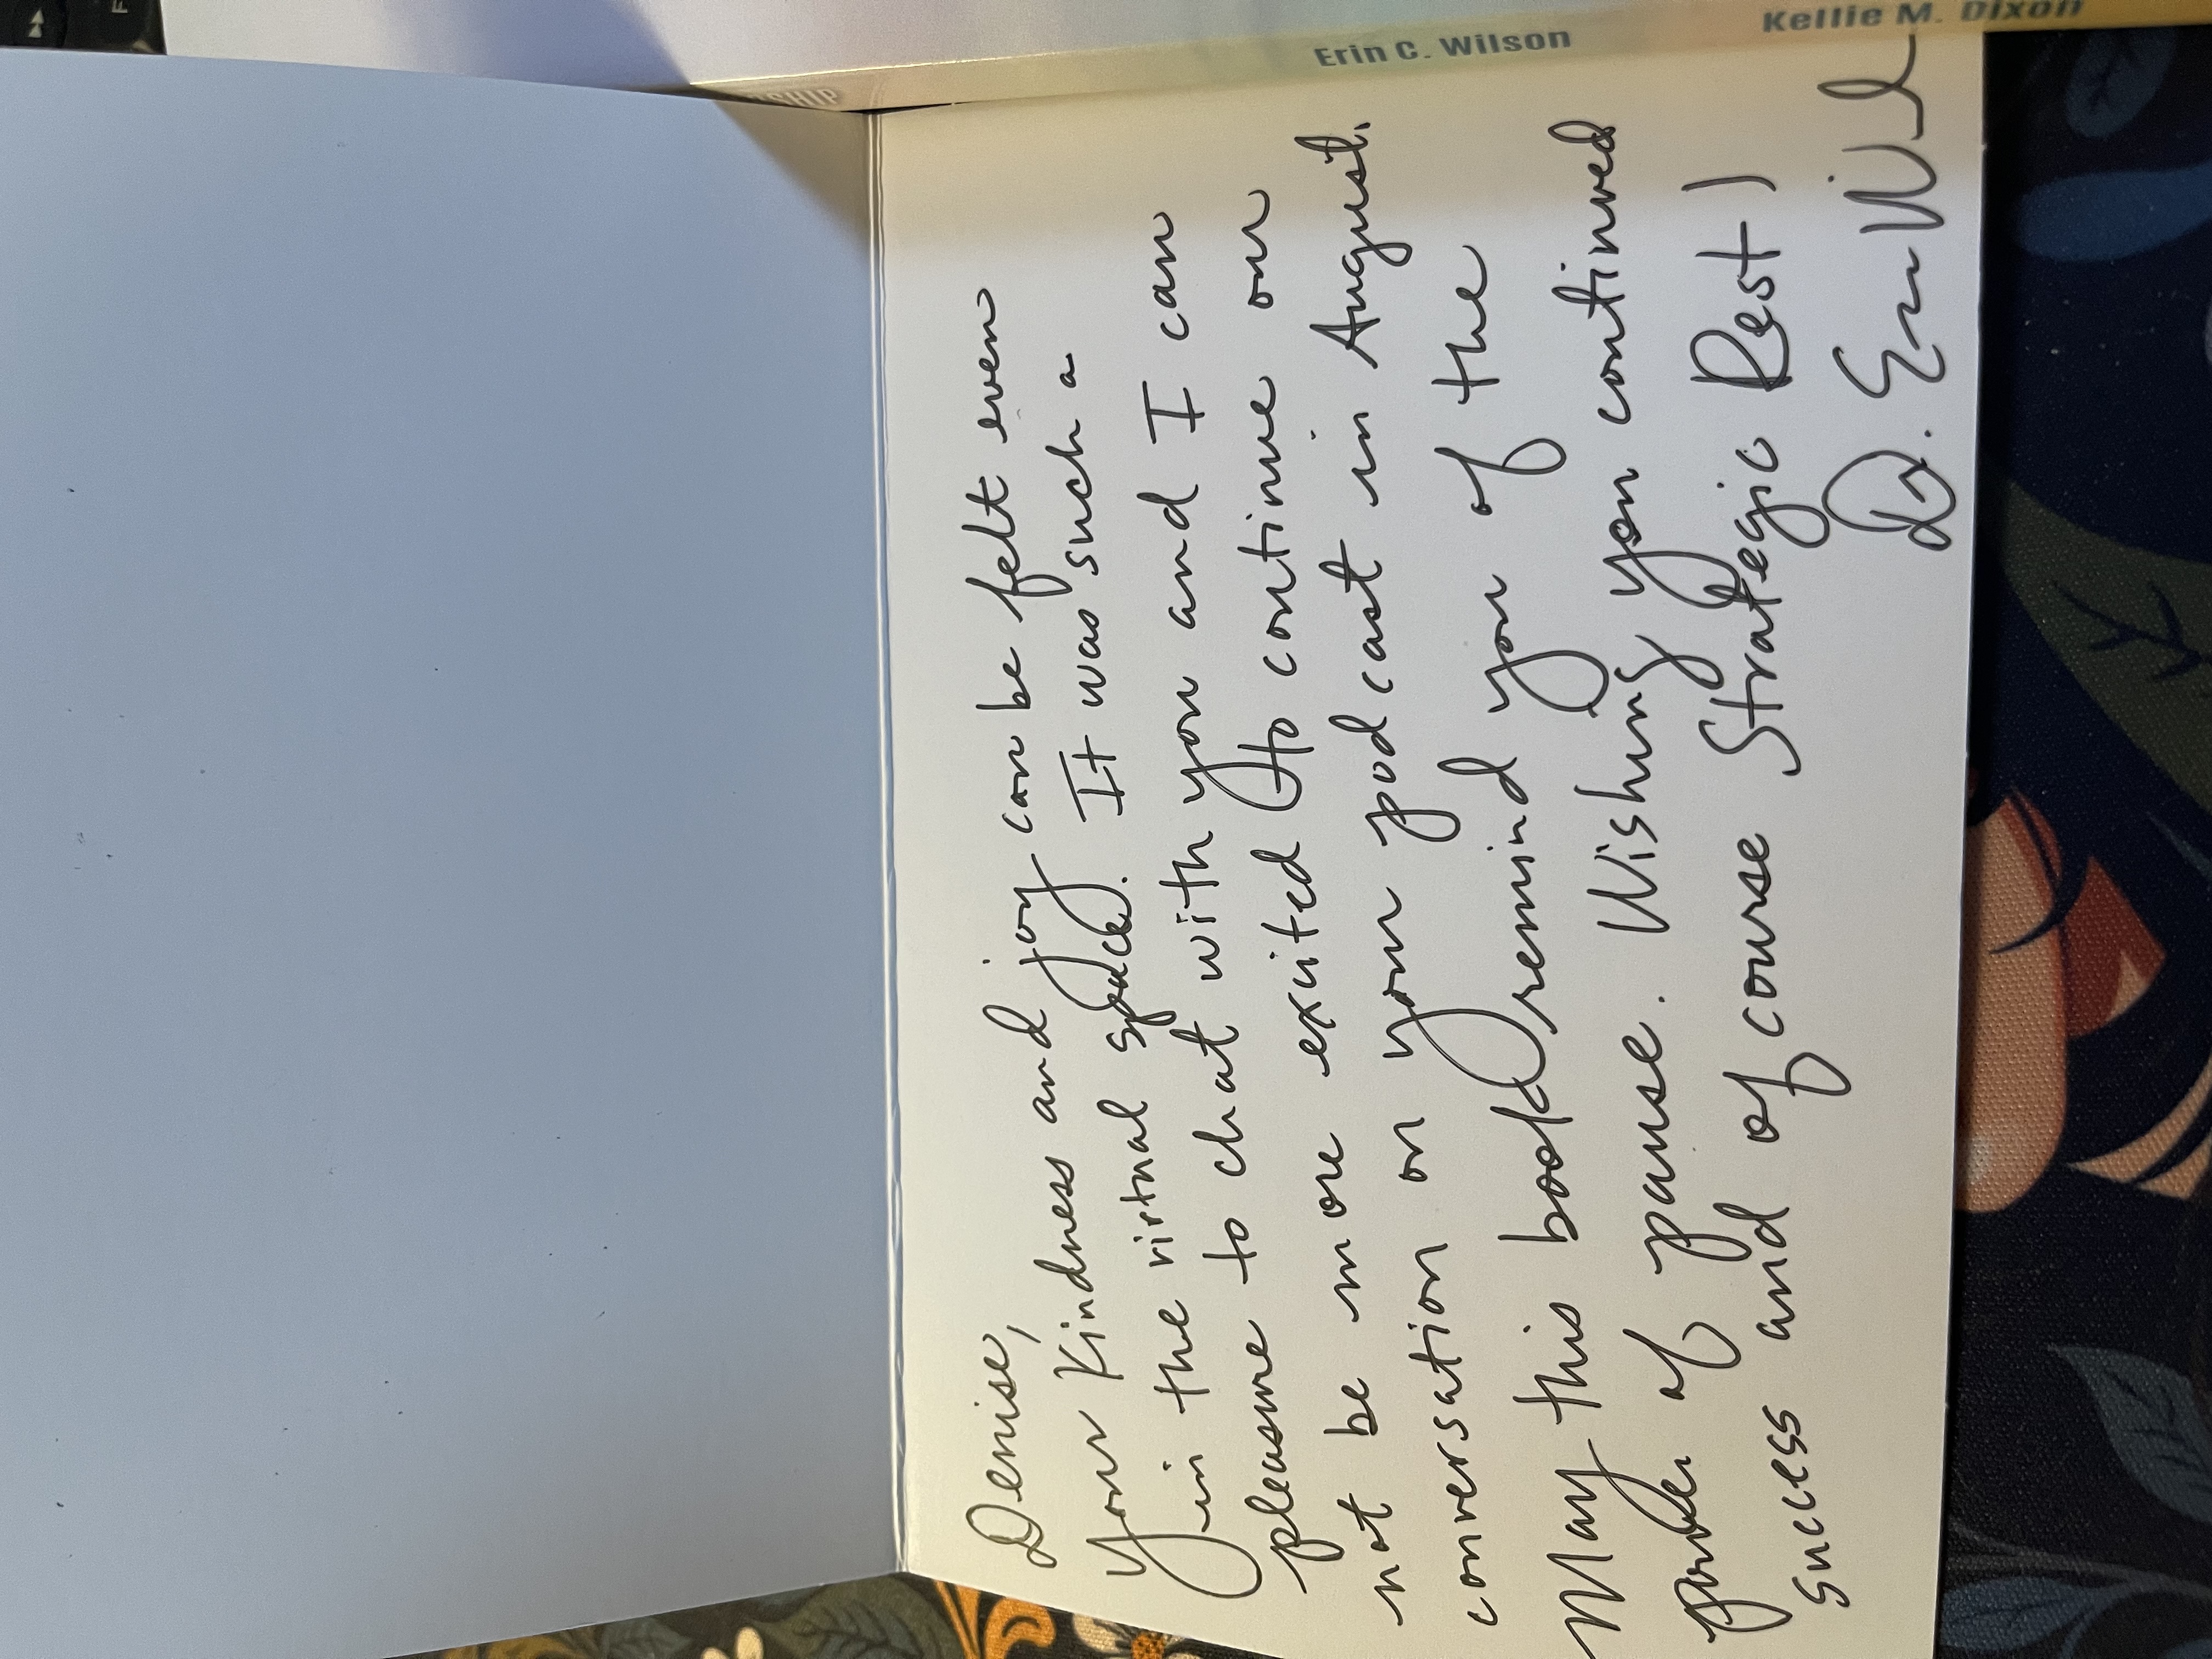 Denise,
Your Kindness and joy can be felt even
in the virtual space. It was such a
pleasure to chat with you and I can
not be more excited to continue our
conversation on your podcast in August.
May this book remind you of the
power of pause. Wishing you continued
success and of course Strategic Rest!
Dr. Erin Wil
Erin C. Wilson
Kellie M. Dixon
SHIP
F